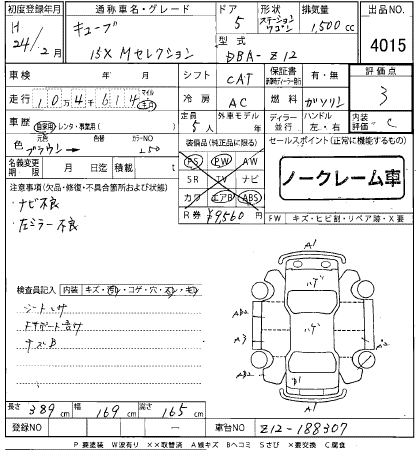 初度登録年月 通称車名・グレード ドア 形状 排気量 出品NO.
H 24/2月 キューブ 15X Mセレクション 5 ステーションワゴン 1,500cc 4015
型式 DBA-Z12
車検 年 月 シフト CAT 保証書 有・無 評価点
走行 10万4千614 マイル キロ 冷房 AC 燃料 ガソリン 3
車歴 自家用・レンタ・事業用( ) 定員 5人 外車モデル ディーラー 並行 ハンドル 左・右 内装評価 C
色 元色 ブラウン 色替 カラーNO 装備品(純正品に限る) セールスポイント(正常に機能するもの)
名義変更期限 月 日迄 積載 t PS PW AW
注意事項(欠品・修復・不具合箇所および状態) SR TV ナビ ノークレーム車
ナビ不良 カワ エアB ABS
左ミラー不良 R券 ¥9,560 FW キズ・ヒビ割・リペア跡・X要
検査員記入 内装 キズ・汚レ・コゲ・穴・スレ・モレ
シート
キズB
A1
ハゲ
ハゲ
A3
B1
A1
長さ 389cm 幅 169cm 高さ 165cm
登録NO ー 車台NO Z12-188307
P要塗装 W波有り XX取替済 A線キズ Bヘコミ Sさび X要交換 C腐食